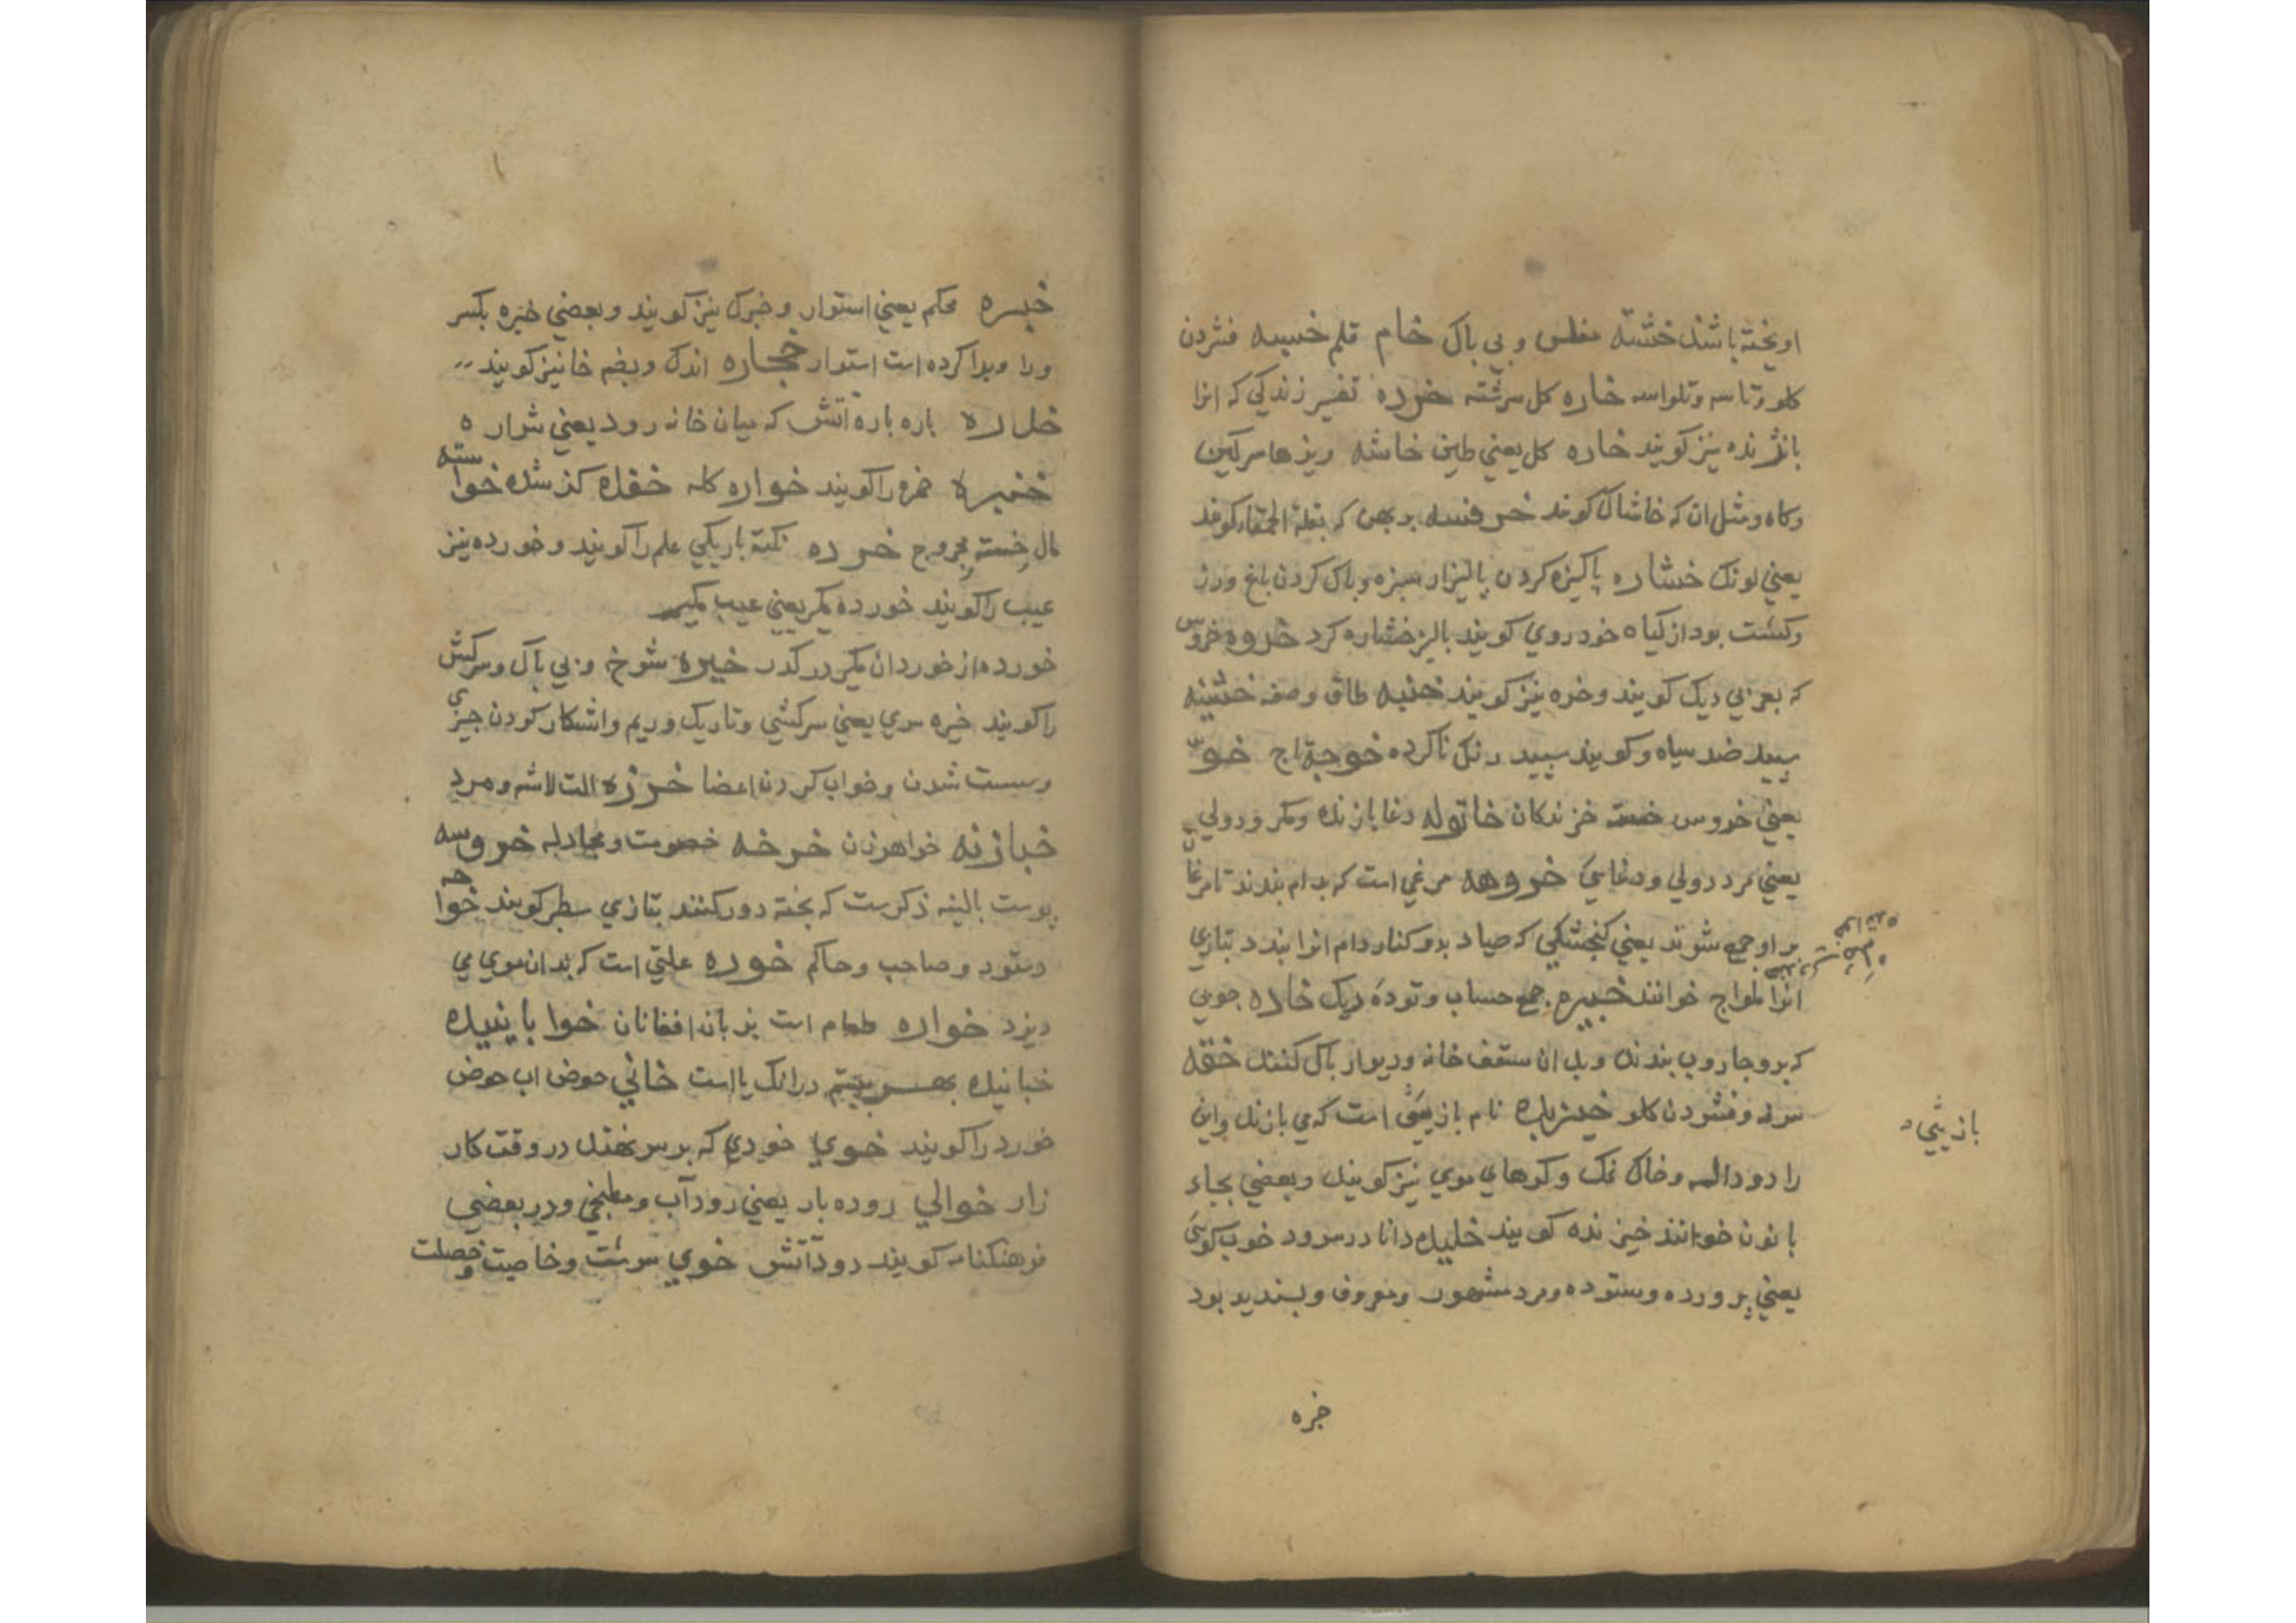 اویخته باشند خشته مفلس و بی باک خام قلم خسپه فشردن
کلو و تاسه و تلواسه خاره کل سرشته خرده تفسیر زند کی که انرا
باژنده نیز کویند خاره کل یعنی طین خاشه ریزها سرکین
وکاه ومثل ان که خاشاک کویند خرفسه بربهن که بقلة الحمقا کویند
یعنی لونک خشاره پاکیزه کردن پالیزار سبزه و پاک کردن باغ ورز
وکشت بود از کیاه خود روی کویند بالیز خشاره کرد خروه خروس
که بعربی دیک کویند وخره نیز کویند خنبه طاق وصفه خشینه
سپید ضد سیاه و کویند سپید رنک ناکرده خوجه تاج خو
یعنی خروس خسته خزندکان خاتوله دغا بازنده ومکر ودولی
یعنی مرد دولی ودغایی خروهه مرغی است که بدام بندند تا مرغان
بر او جمع شوند یعنی کنجشکی که صیاد بدو کنار دام انرا بندد بتازی
انرا ملواح خوانند خبیره جمع حساب وتوده ریک خاده چوبی
که برو جاروب بندند وبدان سقف خانه ودیوار پاک کنند خفه
سرفه و فشردن کلو خیزیده نام بازیی است که می بازند واین
را دوداله وخاک نمک وکوهای موی نیز کویند وبعضی بجاء
با نون خوانند خیزنده کویند خلیده دانا در سرود خوب کویی
یعنی پرورده وستوده ومرد مشهور ومعروف وپسندیده بود
بازیی
خبره
خبره محکم یعنی استوار وخبرک نیز کویند وبعضی خبره بکسر
ورا وبدا کرده است استوار خجاره اندک وبضم خا نیز کویند
خدره باره باره آتش که میان خانه رود یعنی شراره
خنبره خمره را کویند خواره کله خفده کذ شده خواسته
مال خسته مجروح خرده نکته باریکی علم را کویند وخورده نیز
عیب را کویند خورده مکیر یعنی عیب مکیر
خورده از خوردان مکیر در کذر خیره شوخ وبی باک وسرکش
را کویند خیره سری یعنی سرکشی وتاریک وریم واشکار کردن چیزی
وسست شدن وخواب کردن اعضا خرزه الت لاشه ومرد
خبازنه خواهرزن خرخه خصومت ومجادله خروسه
پوست بالینه ذکرست که بخته دور کنند بتازی بظر کویند خواجه
دستور وصاحب وحاکم خوره علتی است که بدان موی می
ریزد خواره طعام است بزبان افغانان خوابانیده
خبانیده در انک یا است خانی حوض اب حوض
خورد را کویند خوی خودی که بر سر نهند در وقت کار
زار خوالی روده بار یعنی رود آب ومطبخی ودر بعضی
فرهنکنامه کویند دود آتش خوی سرشت وخاصیت وخصلت